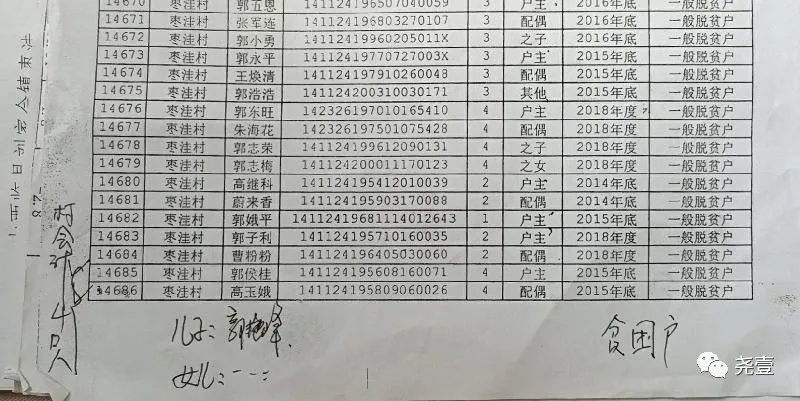 14670 枣洼村 郭五恩 141124196507040059 3 户主 2016年底 一般脱贫户
14671 枣洼村 张军连 141124196803270107 3 配偶 2016年底 一般脱贫户
14672 枣洼村 郭小勇 14112419960205011X 3 之子 2016年底 一般脱贫户
14673 枣洼村 郭永平 14112419770727003X 3 户主 2015年底 一般脱贫户
14674 枣洼村 王焕清 141124197910260048 3 配偶 2015年底 一般脱贫户
14675 枣洼村 郭浩浩 141124200310030171 3 其他 2015年底 一般脱贫户
14676 枣洼村 郭东旺 142326197010165410 4 户主 2018年度 一般脱贫户
14677 枣洼村 朱海花 142326197501075428 4 配偶 2018年度 一般脱贫户
14678 枣洼村 郭志荣 141124199612090131 4 之子 2018年度 一般脱贫户
14679 枣洼村 郭志梅 141124200011170123 4 之女 2018年度 一般脱贫户
14680 枣洼村 高继科 141124195412010039 2 户主 2014年底 一般脱贫户
14681 枣洼村 蔚来香 141124195903170088 2 配偶 2014年底 一般脱贫户
14682 枣洼村 郭娥平 14112419681114012643 1 户主 2015年底 一般脱贫户
14683 枣洼村 郭子利 141124195710160035 2 户主 2018年度 一般脱贫户
14684 枣洼村 曹粉粉 141124196405030060 2 配偶 2018年度 一般脱贫户
14685 枣洼村 郭侯桂 141124195608160071 4 户主 2015年底 一般脱贫户
14686 枣洼村 高玉娥 141124195809060026 4 配偶 2015年底 一般脱贫户
村会计 4口人
儿子:郭
女儿:
贫困户
尧壹